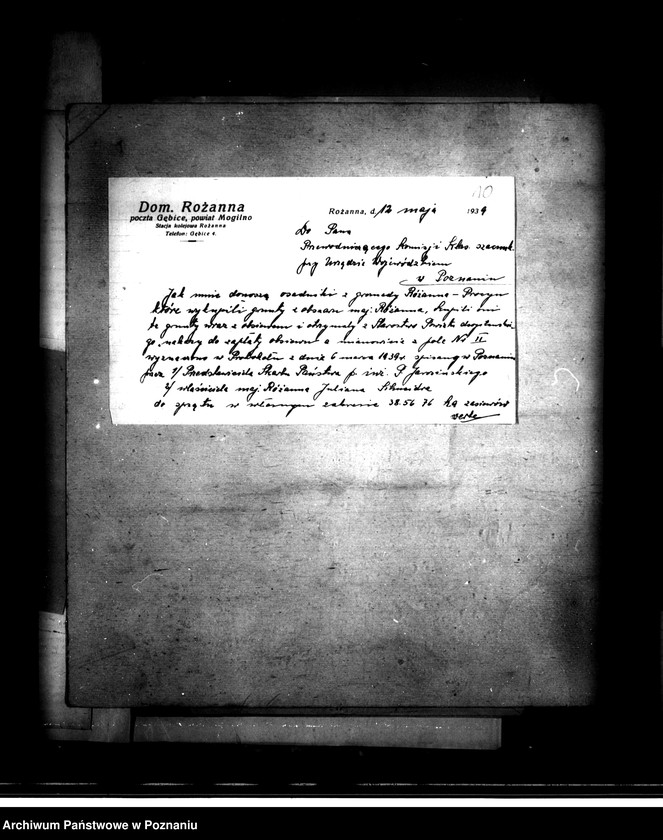 110
Dom. Rożanna
poczta Gębice, powiat Mogilno
Stacja kolejowa Rożanna
Telefon: Gębice 4.
Rożanna, d. 12 maja 1939
Do Pana
Przewodniczącego Komisji szacunk.
przy Urzędzie Wojewódzkim
w Poznaniu
Jak mnie donoszą osadniki z gromady Różanna –
które wykupili grunty z obszaru maj. Różanna, kupili oni
te grunty wraz z obsiewem i otrzymały z Starostwa
go nakazy do zapłaty obsiewu a mianowicie z pola No II
wyznaczono w Protokole z dnia 6 marca 1939 r. spisany w Poznaniu
przez 1/ Przedstawiciela Skarbu Państwa p. inż. P. Jarosińskiego
2/ właściciela maj. Różanna Juliana
do sprzętu w własnym zakresie 38.56 76 ha zasiewów
verte
Archiwum Państwowe w Poznaniu